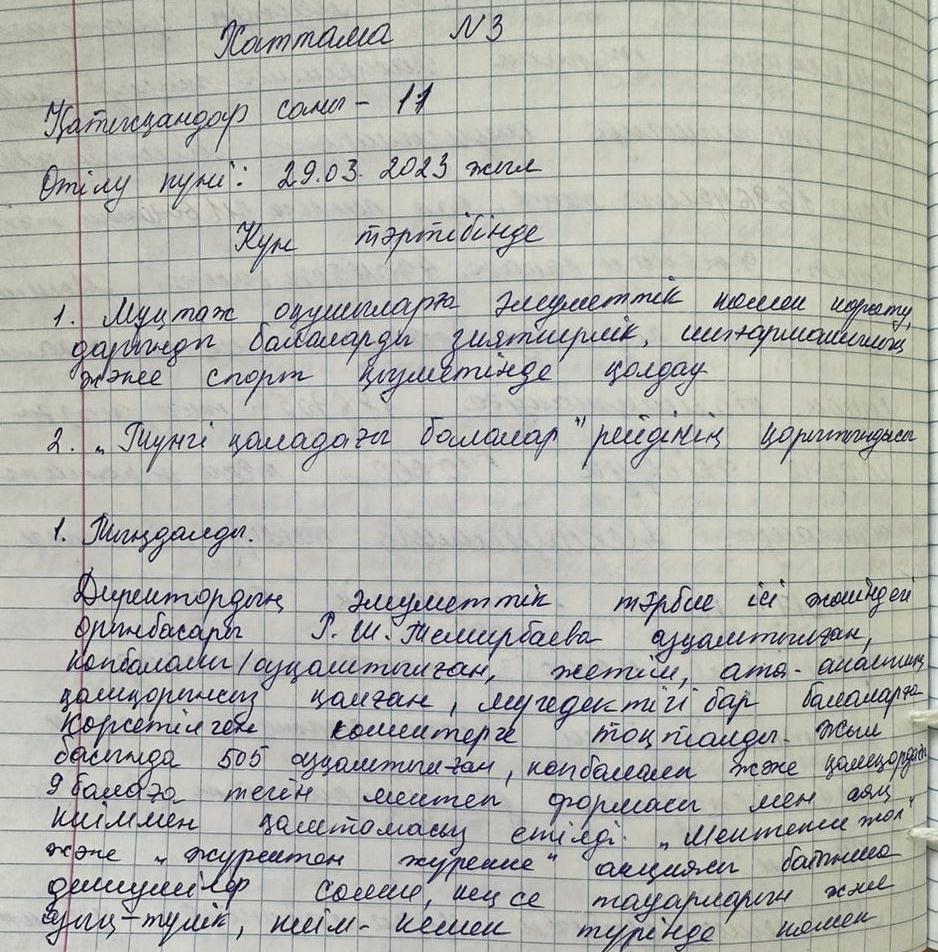 Хаттама N3
Қатысқандар саны - 11
Өтілу күні: 29.03. 2023 жыл
Күн тәртібінде
1. Мұқтаж оқушыларға әлеуметтік көмек көрсету,
дарынды балаларды зияткерлік, шығармашылық
және спорт қызметінде қолдау
2. „Түнгі қаладағы балалар" рейдінің қорытындысы
1. Тыңдалды.
Директордың әлеуметтік тәрбие ісі жөніндегі
орынбасары Г. Ш. Темирбаева аз қамтылған,
көпбалалы/аз қамтылған, жетім, ата-анасының
қамқорынсыз қалған, мүгедектігі бар балаларға
көрсетілген көмектерге тоқталды. Жыл
басында 505 аз қамтылған, көпбалалы және қамқордағы
9 балаға тегін мектеп формасы мен аяқ
киіммен қамтамасыз етілді. „Мектепке жол"
және „жүректен жүрекке" акциясы бойынша
демеушілер сөмке, кеңсе тауарларын және
азық-түлік, киім-кешек түрінде көмек